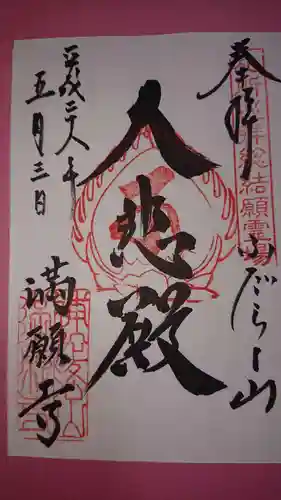 奉拝
拝総結願霊場
ふだらく山
大悲殿
平成二八年
五月三日
満願寺